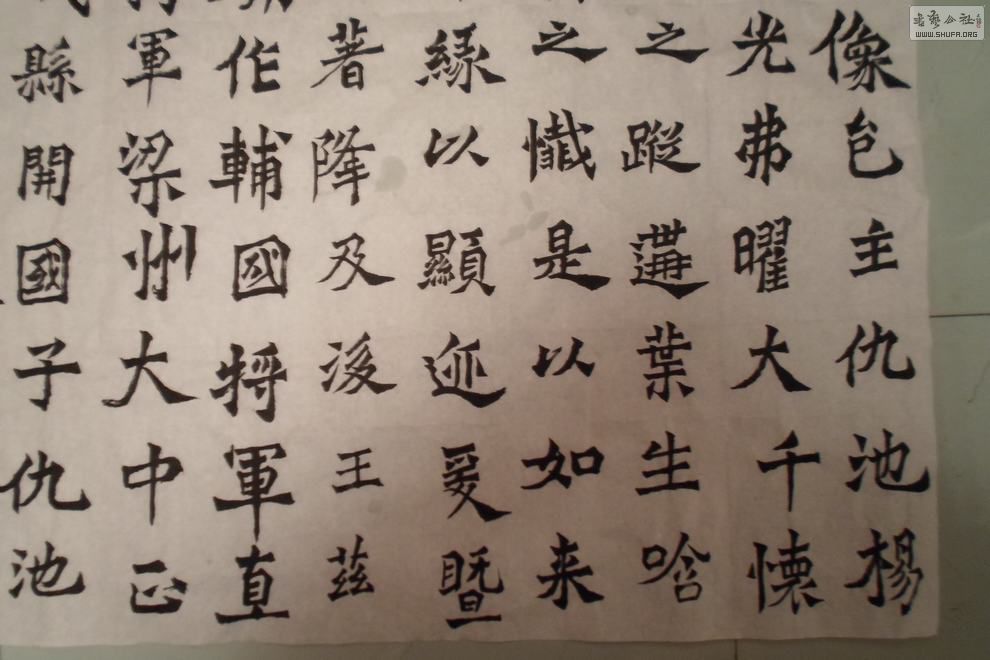 像邑主仇池楊
光弗曜大千懷
之蹤遘葉生唅
之懺是以如来
緣以顯迹爰曁
著降及後王茲
作輔國將軍直
軍梁州大中正
縣開國子仇池
WWW.SHUFA.ORG